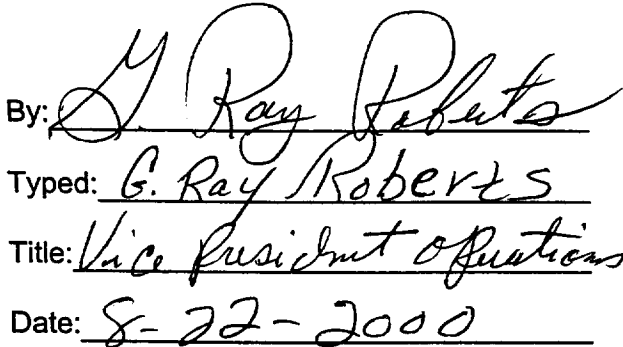 By: G. Ray Roberts
Typed: G. Ray Roberts
Title: Vice President Operations
Date: 8-22-2000